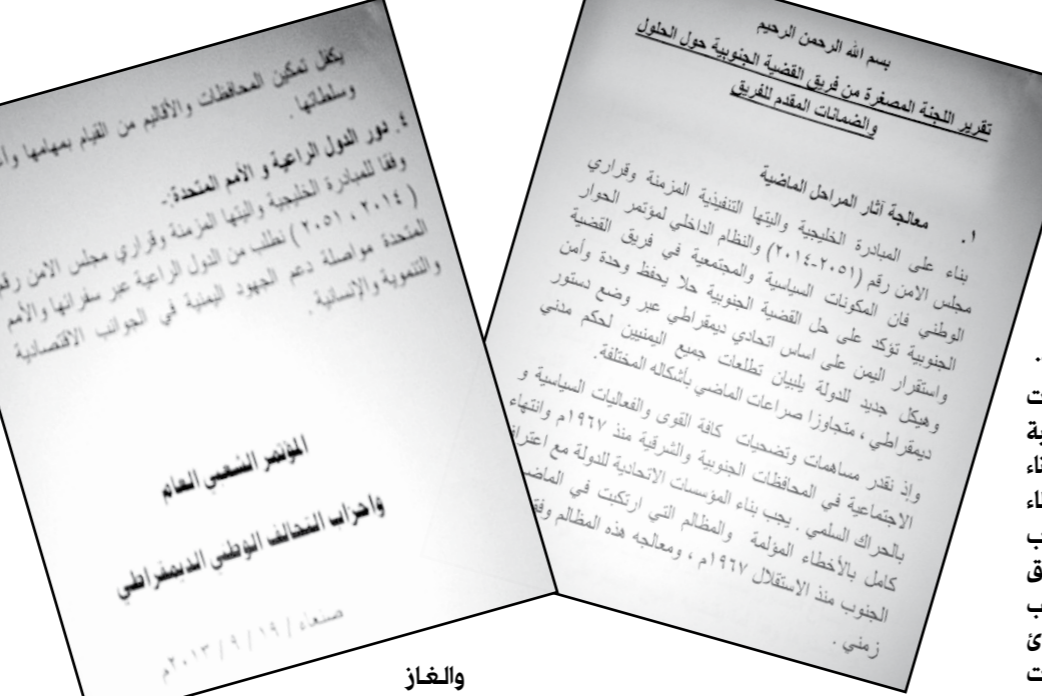 بسم الله الرحمن الرحيم
تقرير اللجنة المصغرة من فريق القضية الجنوبية حول الحلول
والضمانات المقدم للفريق
١. معالجة آثار المراحل الماضية
بناء على المبادرة الخليجية واليتها التنفيذية المزمنة وقراري
مجلس الامن رقم (٢٠٥١-٢٠١٤) والنظام الداخلي لمؤتمر الحوار
الوطني فان المكونات السياسية والمجتمعية في فريق القضية
الجنوبية تؤكد على حل القضية الجنوبية حلا يحفظ وحدة وأمن
واستقرار اليمن على اساس اتحادي ديمقراطي عبر وضع دستور
وهيكل جديد للدولة يلبيان تطلعات جميع اليمنيين لحكم مدني
ديمقراطي ، متجاوزا صراعات الماضي بأشكاله المختلفة.
وإذ نقدر مساهمات وتضحيات كافة القوى والفعاليات السياسية و
الاجتماعية في المحافظات الجنوبية والشرقية منذ ١٩٦٧م وانتهاء
بالحراك السلمي . يجب بناء المؤسسات الاتحادية للدولة مع اعتراف
كامل بالأخطاء المؤلمة والمظالم التي ارتكبت في
الجنوب منذ الاستقلال ١٩٦٧م ، ومعالجه هذه المظالم
زمني .
يكفل تمكين المحافظات والأقاليم من القيام بمهامها
وسلطاتها .
٤. دور الدول الراعية و الأمم المتحدة:-
وفقا للمبادرة الخليجية واليتها المزمنة وقراري مجلس الامن رقم
( ٢٠١٤ ، ٢٠٥١ ) نطلب من الدول الراعية عبر سفرائها والأمم
المتحدة مواصلة دعم الجهود اليمنية في الجوانب الاقتصادية
والتنموية والإنسانية .
المؤتمر الشعبي العام
واحزاب التحالف الوطني الديمقراطي
صنعاء / ١٩ / ٩ / ٢٠١٣م
والغاز